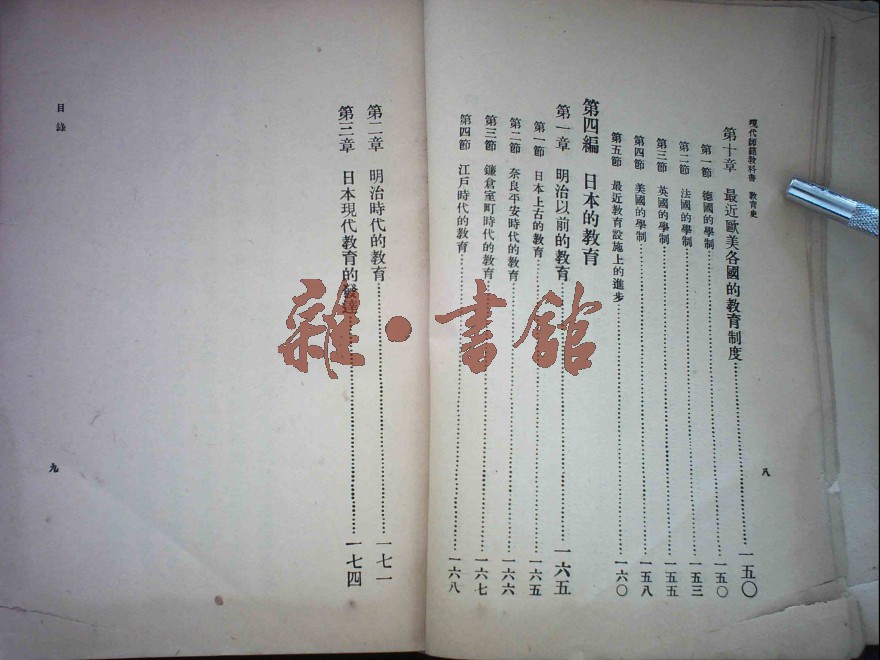 現代師範教科書 教育史
第十章 最近歐美各國的教育制度……一五〇
第一節 德國的學制……一五〇
第二節 法國的學制……一五三
第三節 英國的學制……一五五
第四節 美國的學制……一五八
第五節 最近教育設施上的進步……一六〇
第四編 日本的教育
第一章 明治以前的教育……一六五
第一節 日本上古的教育……一六五
第二節 奈良平安時代的教育……一六六
第三節 鎌倉室町時代的教育……一六七
第四節 江戶時代的教育……一六八
八
第二章 明治時代的教育……一七一
第三章 日本現代教育的發達……一七四
目錄
九
雜·書館